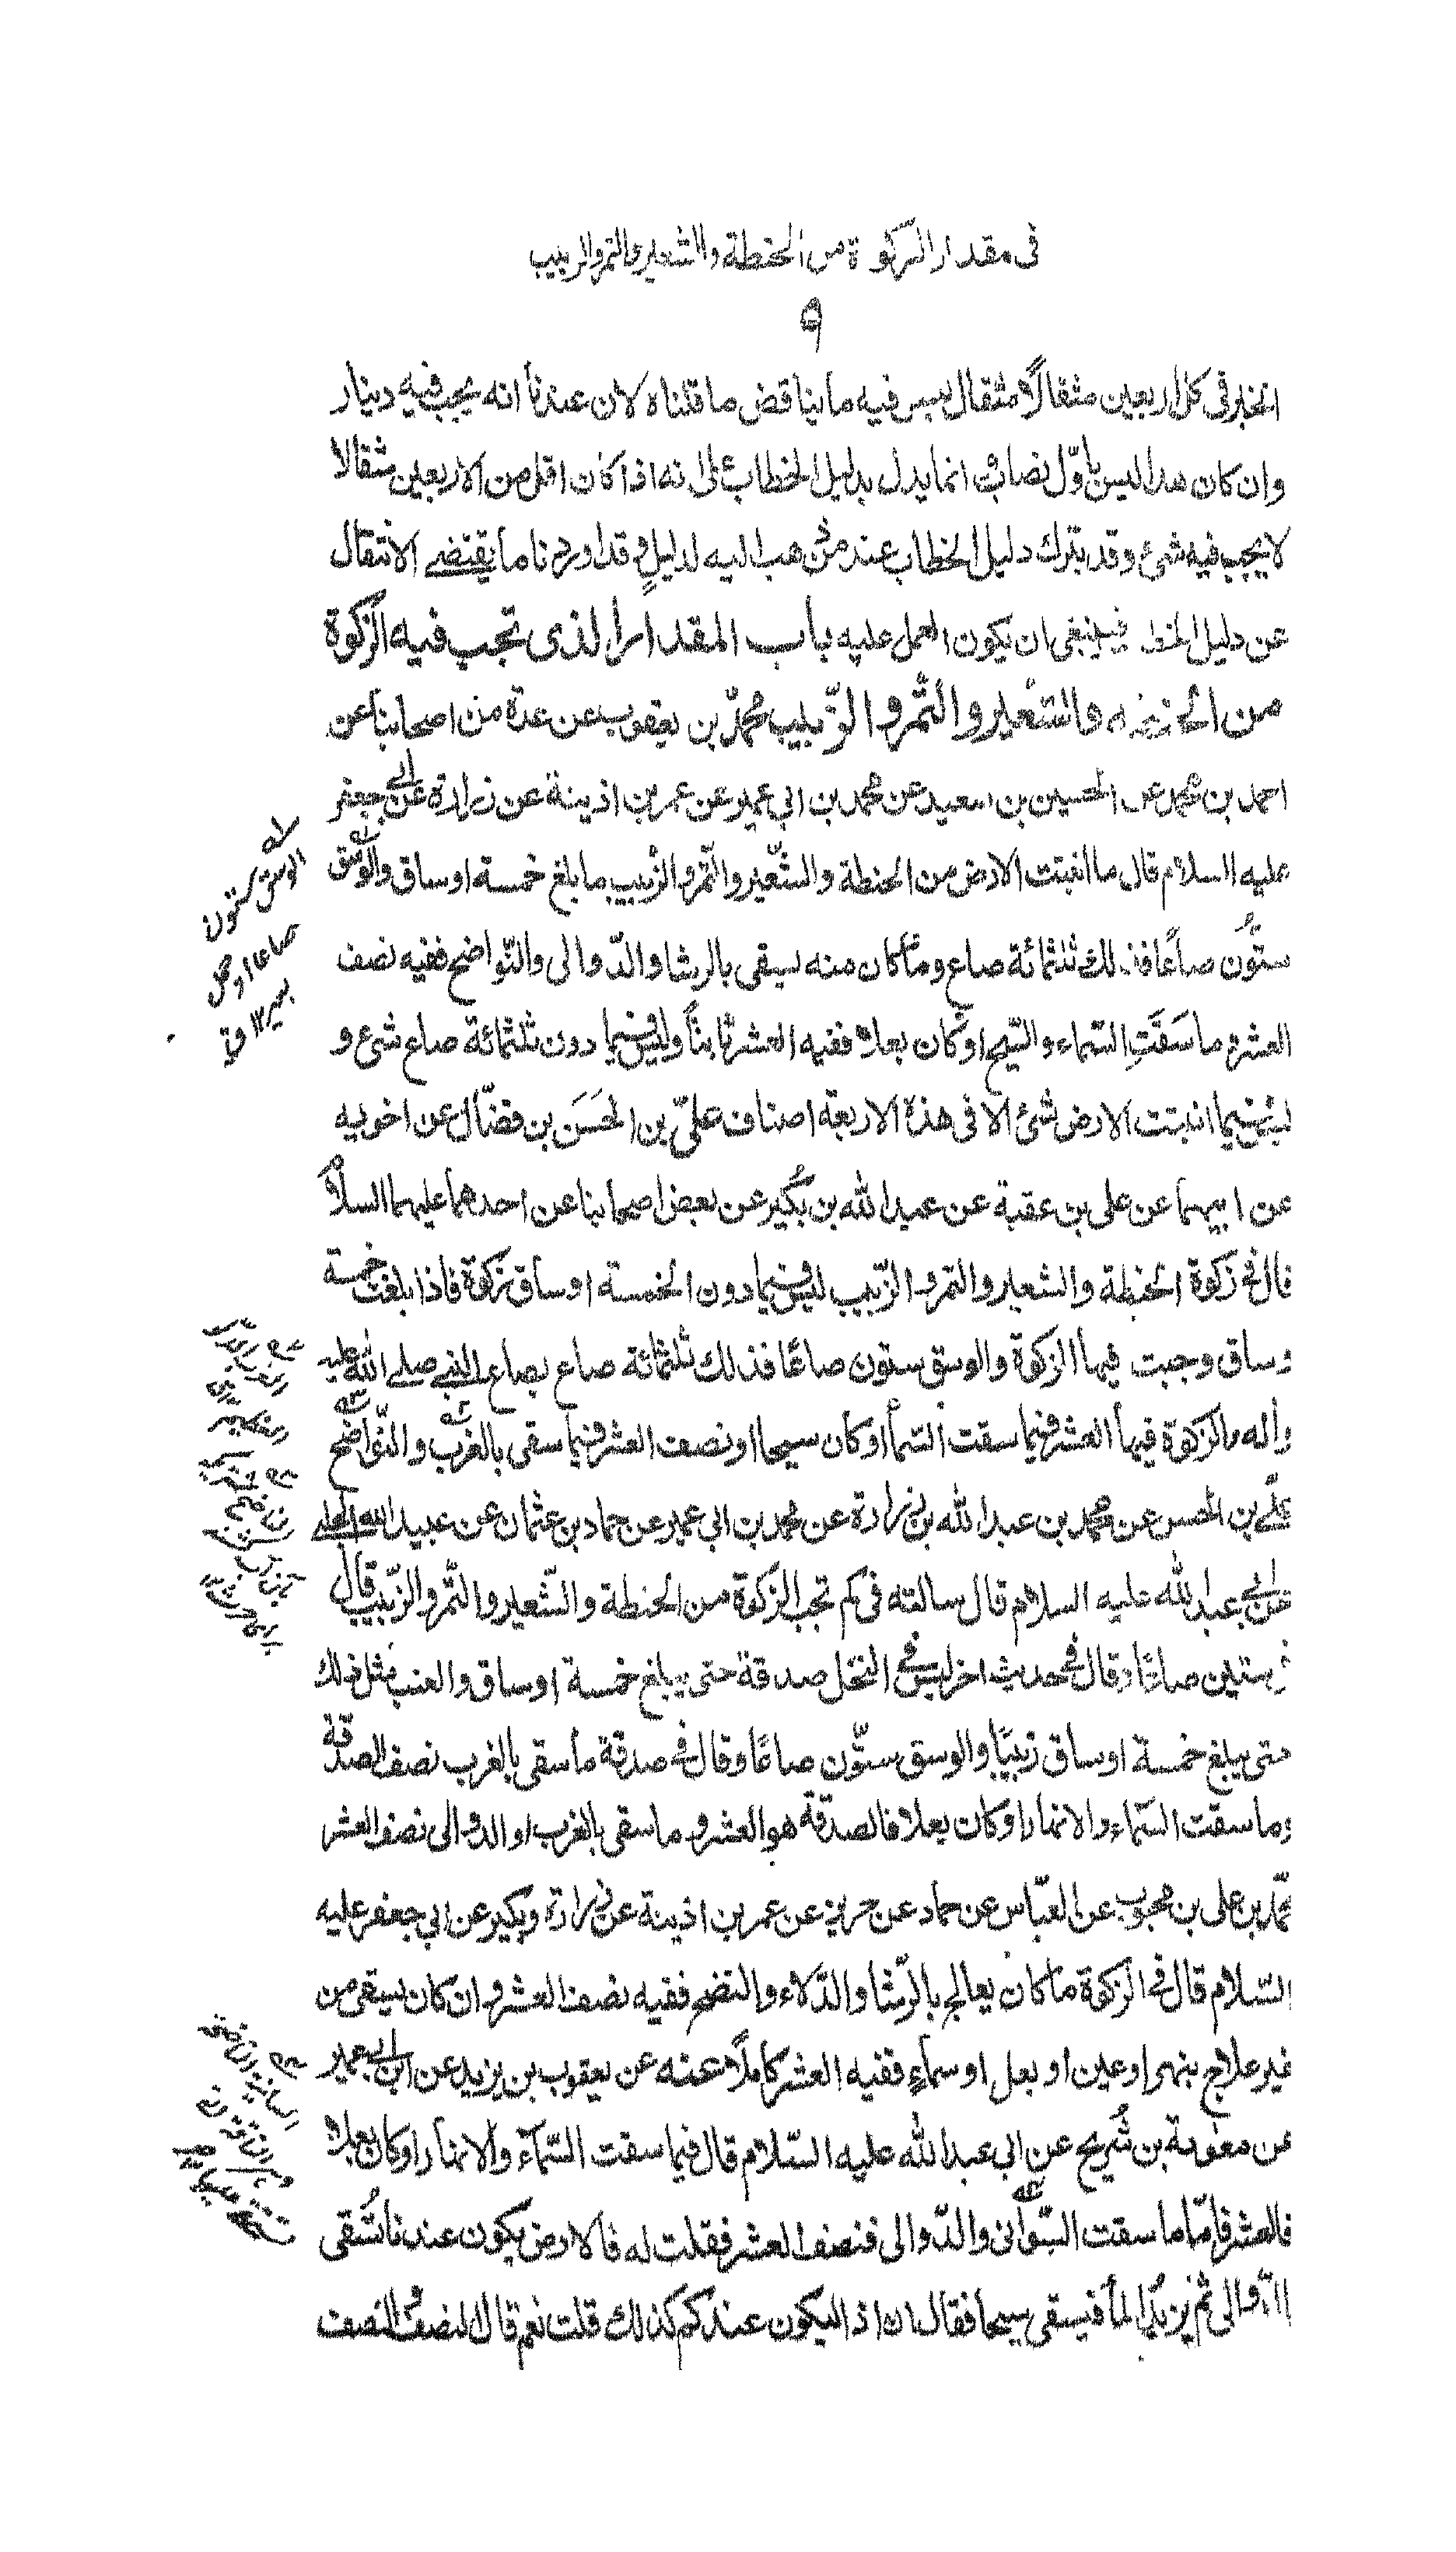 في مقدار الزكوة من الحنطة والشعير والتمر والزبيب
٩
الخبر في كل اربعين مثقالًا مثقال ليس فيه ما يناقض ما قلناه لان عندنا انه يجب فيه دينار
وان كان هذا ليس باوّل نصاب وانما يدل بدليل الخطاب على انه اذا كان اقل من الاربعين مثقالا
لا يجب فيه شئ وقد يترك دليل الخطاب عند من ذهب اليه لدليلٍ وقد اوردنا ما يقتضى الانتقال
عن دليل الخطاب فينبغى ان يكون العمل عليه باب المقدار الذى تجب فيه الزكوة
من الحنطة والشعير والتّمر والزّبيب محمّد بن يعقوب عن عدة من اصحابنا عن
احمد بن محمد عن الحسين بن سعيد عن محمد بن ابي عمير عن عمر بن اذينة عن زرارة عن ابي جعفر
عليه السلام قال ما انبتت الارض من الحنطة والشّعير والتّمر والزّبيب ما بلغ خمسة اوساق والوسق
ستّون صاعًا فذلك ثلثمائة صاع وما كان منه يسقى بالرشا والدّوالى والنّواضح ففيه نصف
العشر وما سَقَتِ السّماء والسّيح او كان بعلا ففيه العشر تابتاً وليس فيما دون ثلثمائة صاع شئ و
ليس فيما انبتت الارض شئ الّا فى هذه الاربعة اصناف علىّ بن الحَسَن بن فضّال عن اخويه
عن ابيهما عن على بن عقبة عن عبد الله بن بُكير عن بعض اصحابنا عن احدهما عليهما السلام
قال فى زكوة الحنطة والشعير والتمر والزّبيب ليس فيما دون الخمسة اوساق زكوة فاذا بلغت خمسة
وساق وجبت فيها الزكوة والوسق ستون صاعًا فذلك ثلثمائة صاع بصاع النبى صلى الله عليه
واله والزكوة فيها العشر فيما سقت السّماء او كان سيحا او نصف العشر فيما سقى بالغرب والنّواضح
علي بن الحسن عن محمد بن عبد الله بن زرارة عن محمد بن ابي عمير عن حماد بن عثمان عن عبيد الله الحلبى
عن ابى عبد الله عليه السلام قال سالته فى كم تجب الزكوة من الحنطة والشّعير والتّمر والزّبيب قال
فى ستين صاعًا وقال فى حديث اخر ليس فى النخل صدقة حتى يبلغ خمسة اوساق والعنب مثل ذلك
حتى يبلغ خمسة اوساق زبيبًا والوسق ستّون صاعًا وقال فى صدقة ما سقى بالغرب نصف الصدقة
وما سقت السّماء والانهار او كان بعلا فالصدقة هو العشر وما سقى بالغرب او الدوالى نصف العشر
محمّد بن على بن محبوب عن العبّاس عن حماد عن حريز عن عمر بن اذينة عن زرارة وبكير عن ابى جعفر عليه
السّلام قال فى الزكوة ما كان يعالج بالرّشا والدّلاء والنضح ففيه نصف العشر وان كان يسقى من
غير علاج بنهر او عين او بعل او سماءٍ ففيه العشر كاملًا عنه عن يعقوب بن يزيد عن ابن ابى عمير
عن معوية بن شُريح عن ابى عبد الله عليه السّلام قال فيما سقت السّماء والانهار او كان بعلا
فالعشر فامّا ما سقت السّوانى والدّوالى فنصف العشر فقلت له فالارض يكون عندنا تُسقى
بالدّوالى ثم يزيد الماء فيسقى سيحا فقال ان ذا ليكون عندكم كذلك قلت نعم قال النصف والنصف
الوسق ستون
صاعا او حمل
بعير ١٢ ق